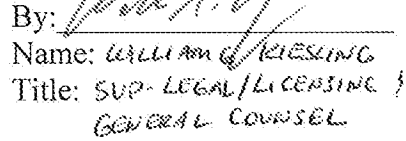 By:
Name: WILLIAM G KIESLING
Title: SVP - LEGAL/LICENSING &
GENERAL COUNSEL